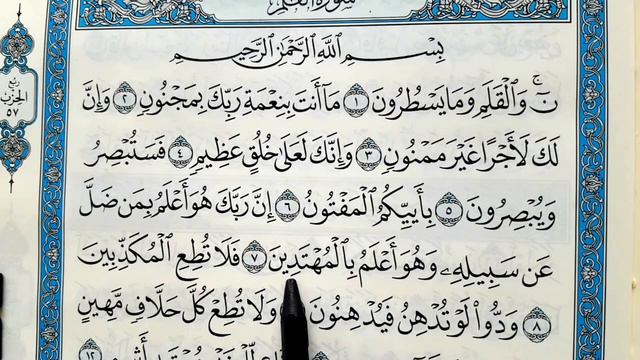 سورة القلم
ربع الحزب ٥٧
بِسْمِ اللَّهِ الرَّحْمَٰنِ الرَّحِيمِ
نٓ ۚ وَالْقَلَمِ وَمَا يَسْطُرُونَ ١ مَا أَنتَ بِنِعْمَةِ رَبِّكَ بِمَجْنُونٍ ٢ وَإِنَّ
لَكَ لَأَجْرًا غَيْرَ مَمْنُونٍ ٣ وَإِنَّكَ لَعَلَىٰ خُلُقٍ عَظِيمٍ ٤ فَسَتُبْصِرُ
وَيُبْصِرُونَ ٥ بِأَييِّكُمُ الْمَفْتُونُ ٦ إِنَّ رَبَّكَ هُوَ أَعْلَمُ بِمَن ضَلَّ
عَن سَبِيلِهِۦ وَهُوَ أَعْلَمُ بِالْمُهْتَدِينَ ٧ فَلَا تُطِعِ الْمُكَذِّبِينَ
٨ وَدُّوا لَوْ تُدْهِنُ فَيُدْهِنُونَ وَلَا تُطِعْ كُلَّ حَلَّافٍ مَّهِينٍ